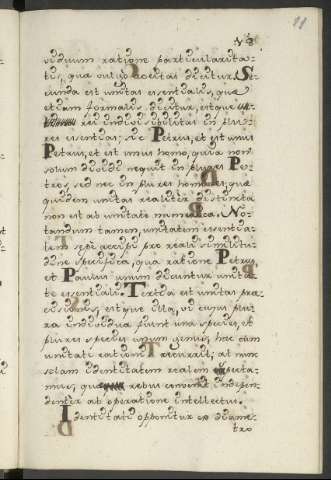 11
viduum ratione particularita-
tis, qua
Se-
cunda est unitas essentialis, quæ
etiam formalis dicitur, estque
rei indivisibilitas in plu-
res essentias: ut Petrus, et est unus
Petrus, et est unus homo, quia non
solum dividi nequit in plures Pe-
tros, sed nec in plures homines, quæ
quidem unitas realiter distincta
non est ab unitate numerica. No-
tandum tamen, unitatem essentia-
lem sæpe accipi pro reali similitu-
dine specifica, qua ratione Petrus,
et Paulus unum dicuntur unita-
te essentiali. Tertia est unitas præ-
cisionis, estque illa, vi cujus plu-
ra individua fiunt una species, et
plures species unum genus, hæc cum
unitate rationis
at nunc
solam identitatem realem
mus, quæ rebus convenit indepen-
denter ab operatione intellectus.
Identitati opponitur ex diame-
tro